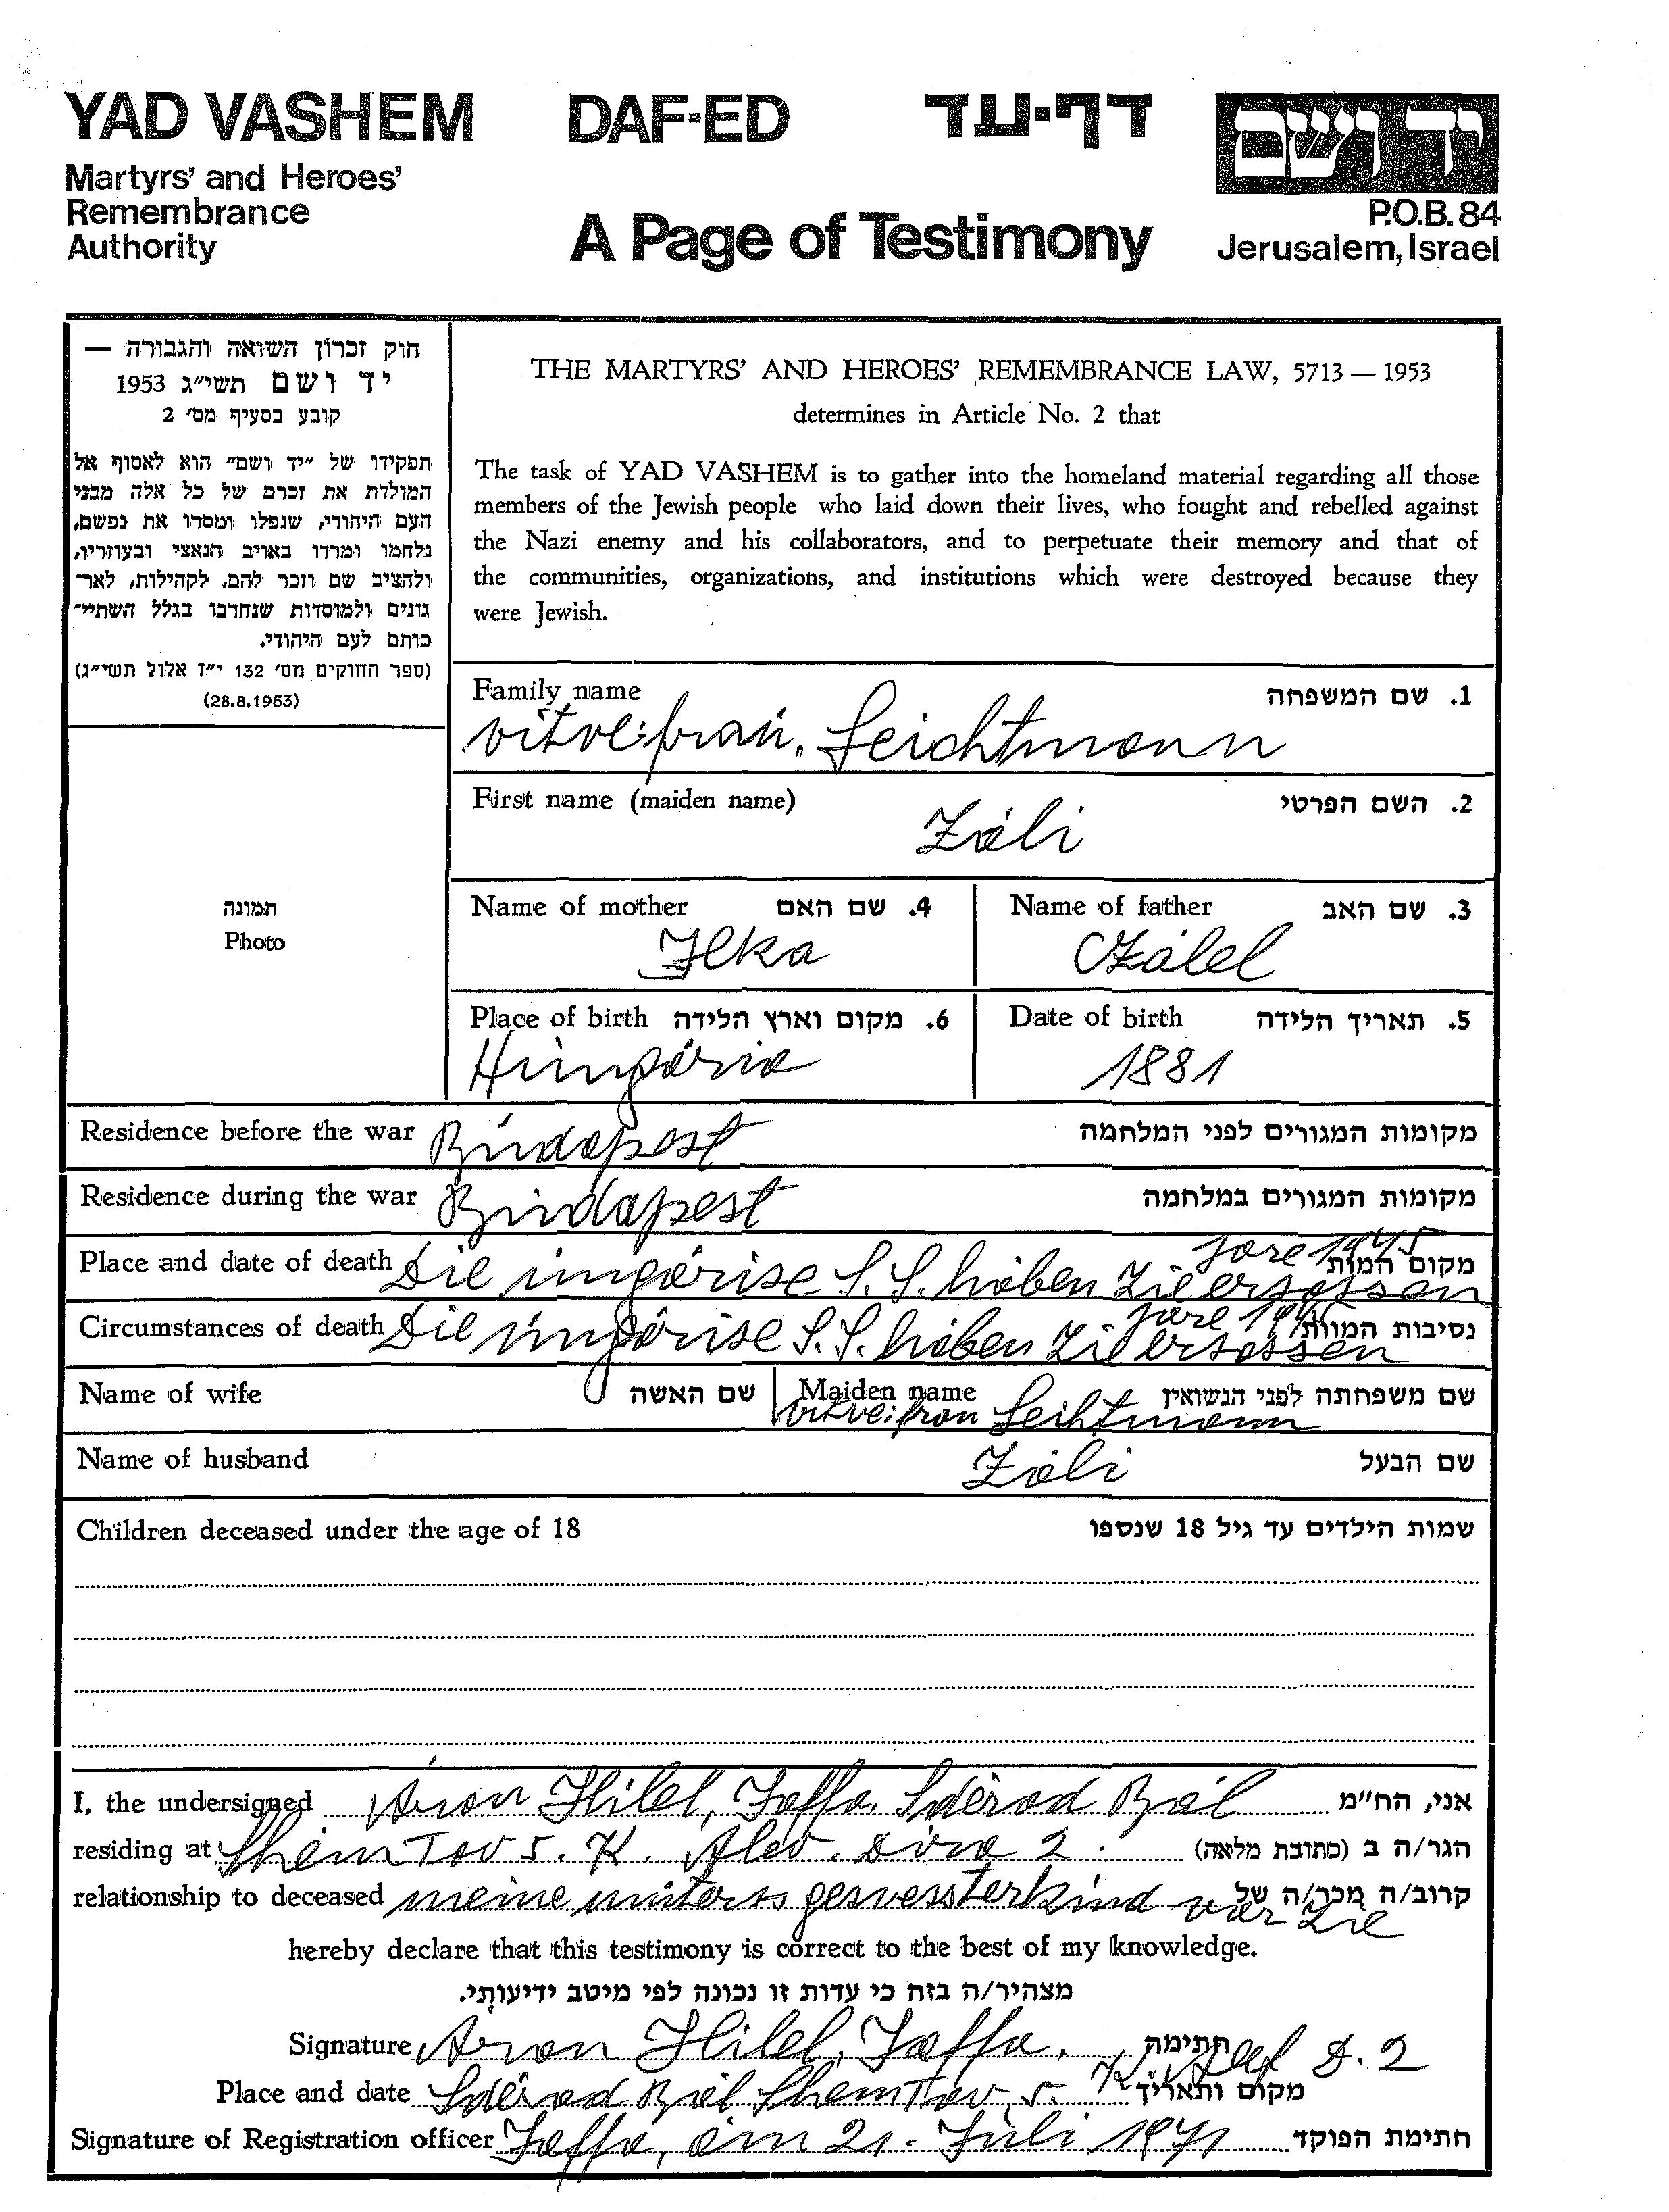 YAD VASHEM DAF-ED דף-עד יד ושם
Martyrs' and Heroes'
Remembrance
Authority
A Page of Testimony
P.O.B. 84
Jerusalem, Israel
חוק זכרון השואה והגבורה —
יד ושם תשי״ג 1953
קובע בסעיף מס׳ 2
תפקידו של ״יד ושם״ הוא לאסוף אל
המולדת את זכרם של כל אלה מבני
העם היהודי, שנפלו ומסרו את נפשם,
נלחמו ומרדו באויב הנאצי ובעוזריו,
ולהציב שם וזכר להם, לקהילות, לאר־
גונים ולמוסדות שנחרבו בגלל השתיי־
כותם לעם היהודי.
(ספר החוקים מס׳ 132 י״ז אלול תשי״ג)
(28.8.1953)
THE MARTYRS' AND HEROES' REMEMBRANCE LAW, 5713 — 1953
determines in Article No. 2 that
The task of YAD VASHEM is to gather into the homeland material regarding all those
members of the Jewish people who laid down their lives, who fought and rebelled against
the Nazi enemy and his collaborators, and to perpetuate their memory and that of
the communities, organizations, and institutions which were destroyed because they
were Jewish.
תמונה
Photo
Family name 1. שם המשפחה
vitve:fraú, Leichtmann
First name (maiden name) 2. השם הפרטי
Záli
Name of mother 4. שם האם Name of father 3. שם האב
Ilka Czálel
Place of birth 6. מקום וארץ הלידה Date of birth 5. תאריך הלידה
Hungária 1881
Residence before the war Búdapest מקומות המגורים לפני המלחמה
Residence during the war Budapest מקומות המגורים במלחמה
Place and date of death Die ungárise S.S. háben Zie ersossen Jare 1945 מקום המות
Circumstances of death Die ungárise S.S. háben Zie ersossen Jare 1945 נסיבות המוות
Name of wife שם האשה Maiden name vitve:fran Leihtmann שם משפחתה לפני הנשואין
Name of husband Záli שם הבעל
Children deceased under the age of 18 שמות הילדים עד גיל 18 שנספו
I, the undersigned Áron Hilel, Jaffa, Sdèrod Bál אני, הח״מ
residing at ShemTov 5. K. Alev. Dira 2. הגר/ה ב (כתובת מלאה)
relationship to deceased meine muters gesvessterkind var Zie קרוב/ה מכר/ה של
hereby declare that this testimony is correct to the best of my knowledge.
מצהיר/ה בזה כי עדות זו נכונה לפי מיטב ידיעותי.
Signature Aron Hilel, Jaffa. חתימה
Place and date Sdèrod Bál ShemTov 5. K. Alef D. 2 מקום ותאריך
Signature of Registration officer Jaffa, am 21. Juli 1971 חתימת הפוקד